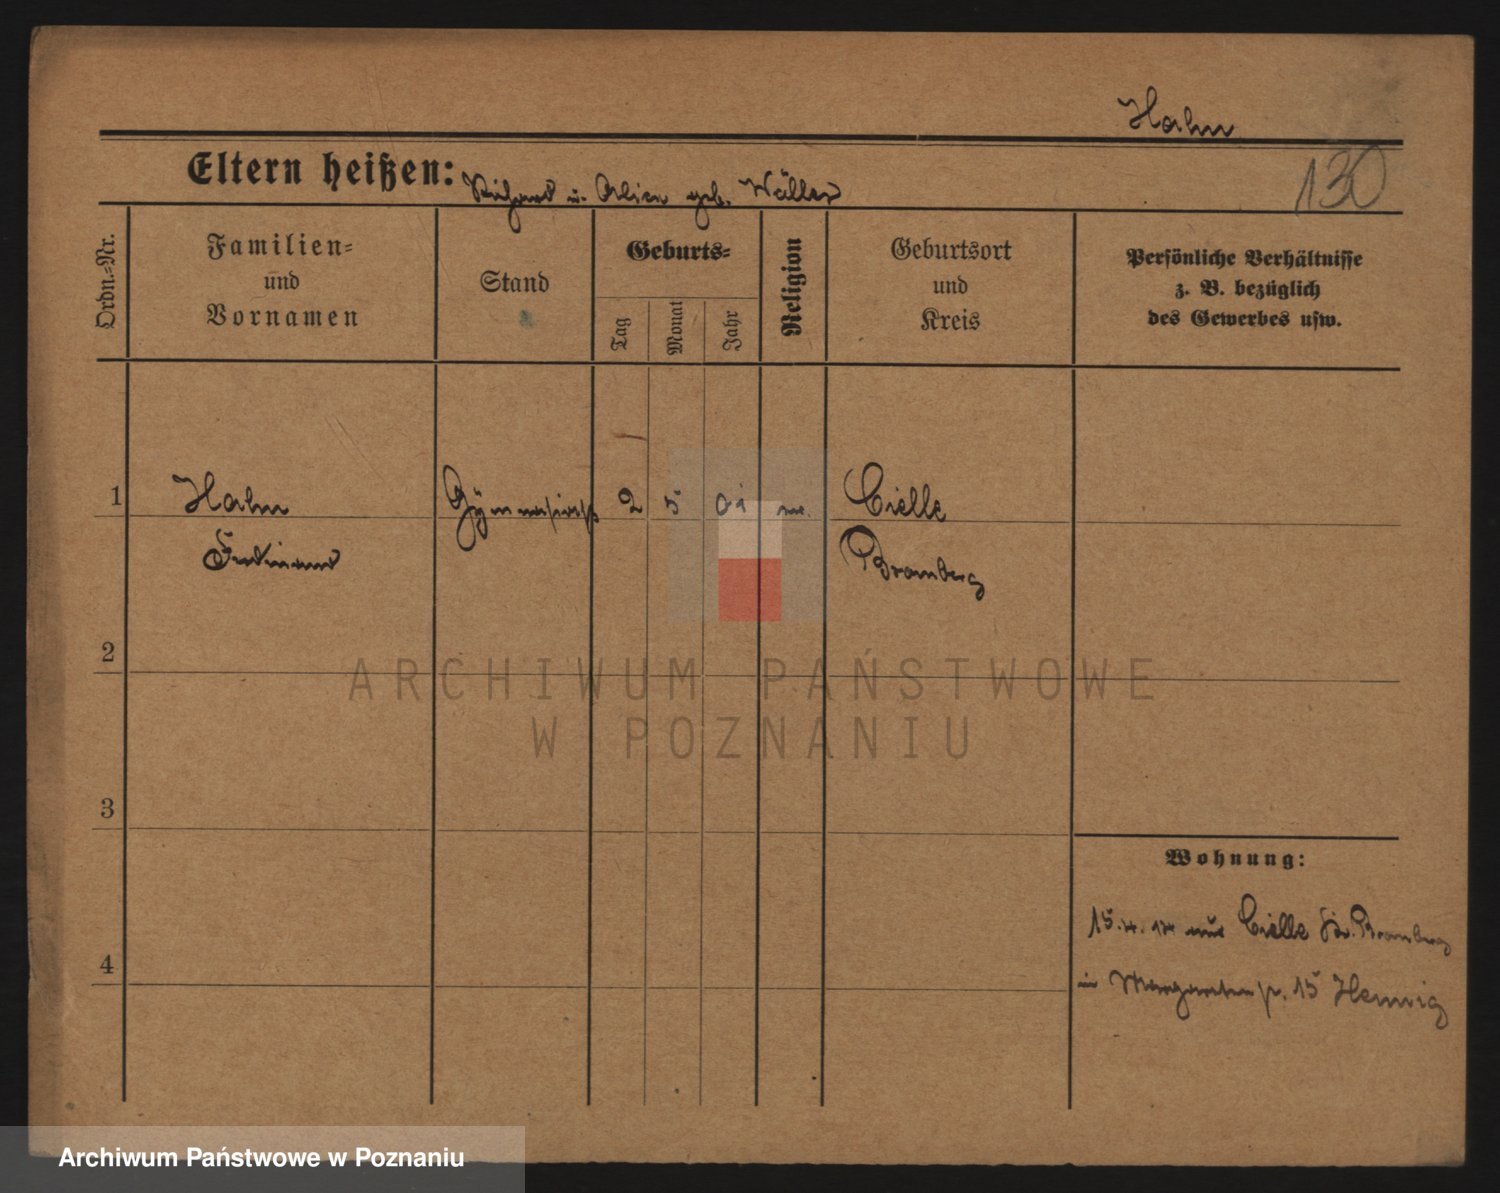 Hahn
130
Eltern heißen: Richard u. geb. Müller
Ordn.=Nr.
Familien=
und
Vornamen
Stand
Geburts=
Tag
Monat
Jahr
Religion
Geburtsort
und
Kreis
Persönliche Verhältnisse
z. B. bezüglich
des Gewerbes usw.
1 Hahn Gymnasiast 2 5 01 Cielle
Ferdinand Bromberg
2
ARCHIWUM PAŃSTWOWE
W POZNANIU
3
Wohnung:
15.4.14 aus Cielle Kr. Bromberg
4
in Margareten 15 Hennig
Archiwum Państwowe w Poznaniu